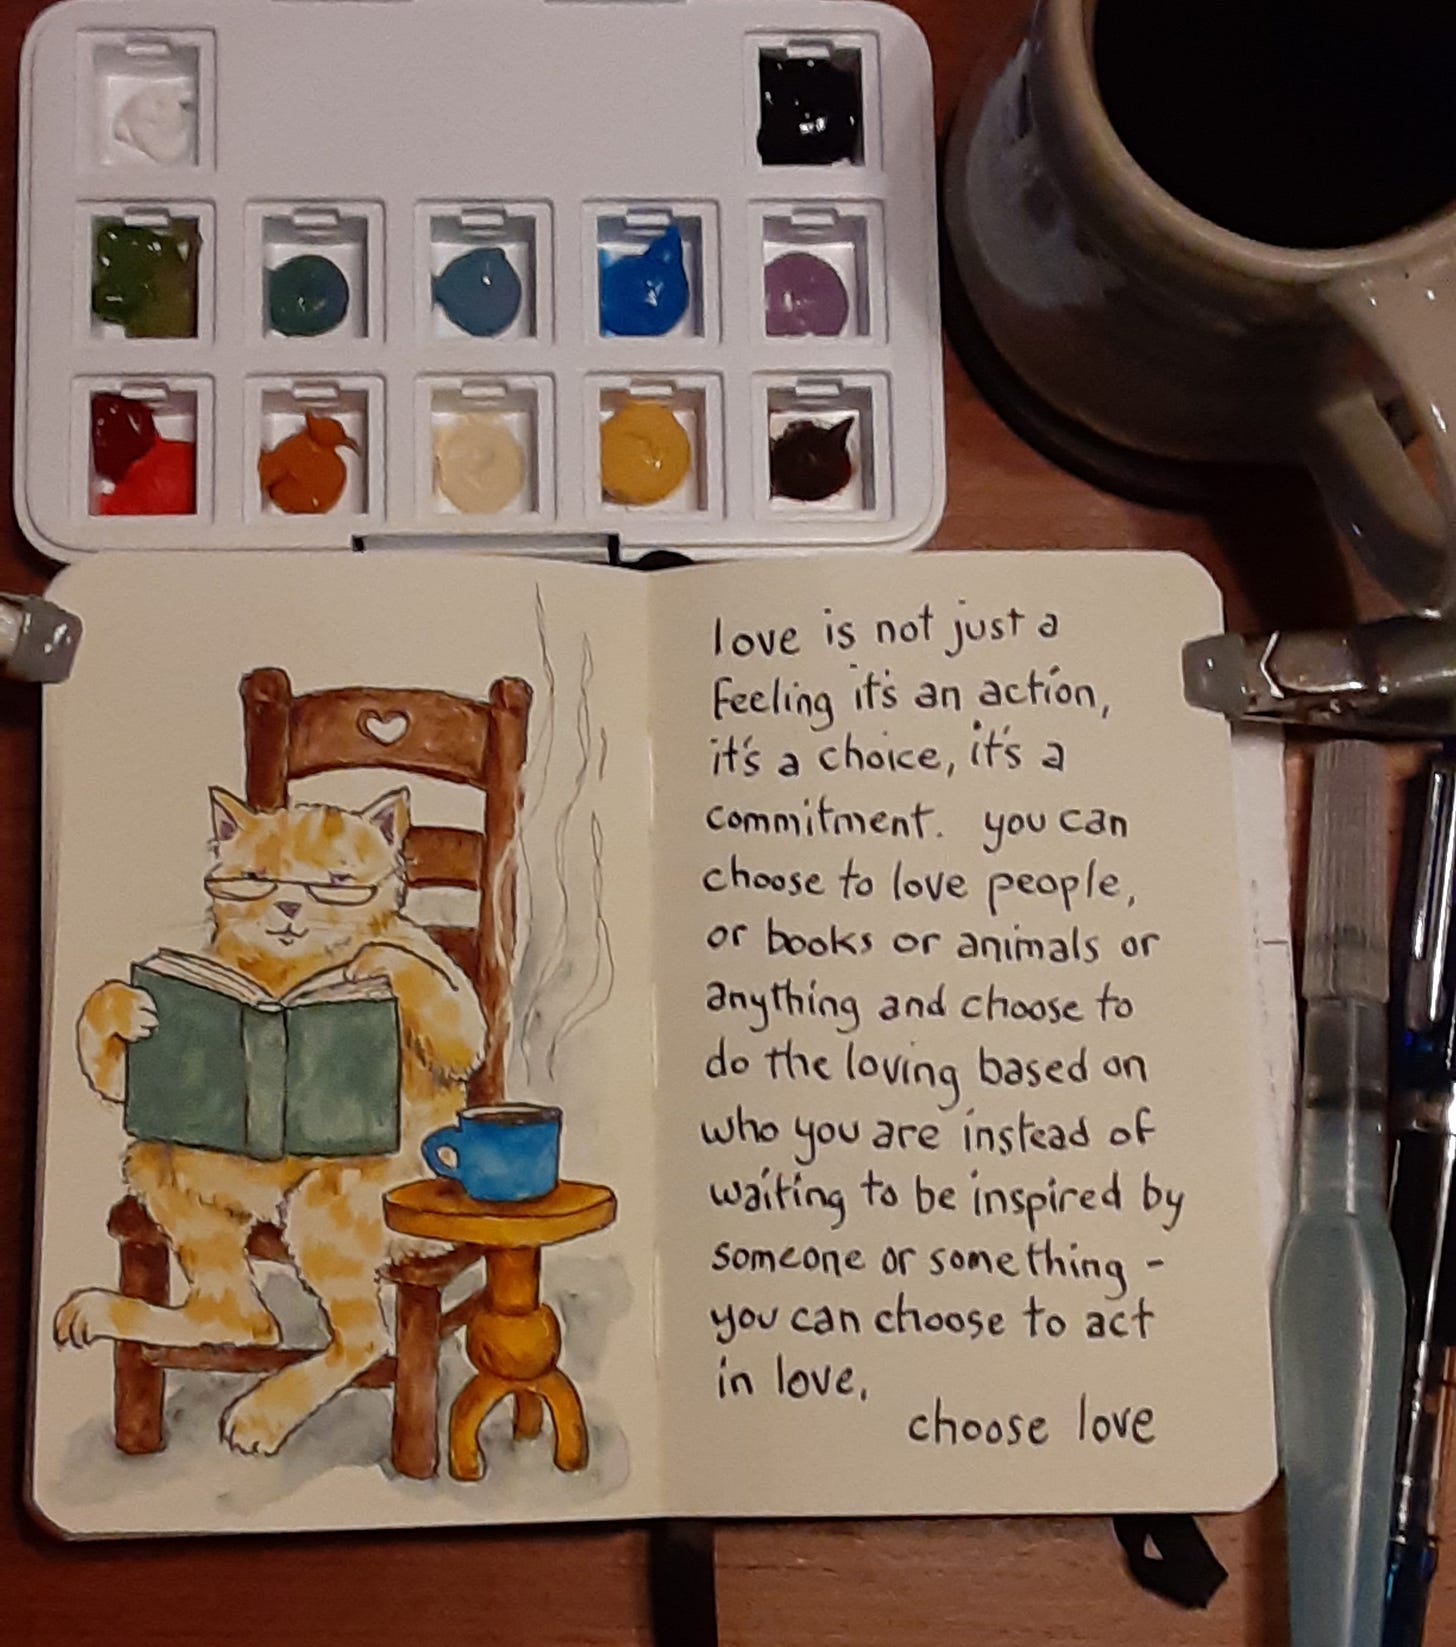 love is not just a
feeling it's an action,
it's a choice, it's a
commitment. you can
choose to love people,
or books or animals or
anything and choose to
do the loving based on
who you are instead of
waiting to be inspired by
someone or something -
you can choose to act
in love.
choose love